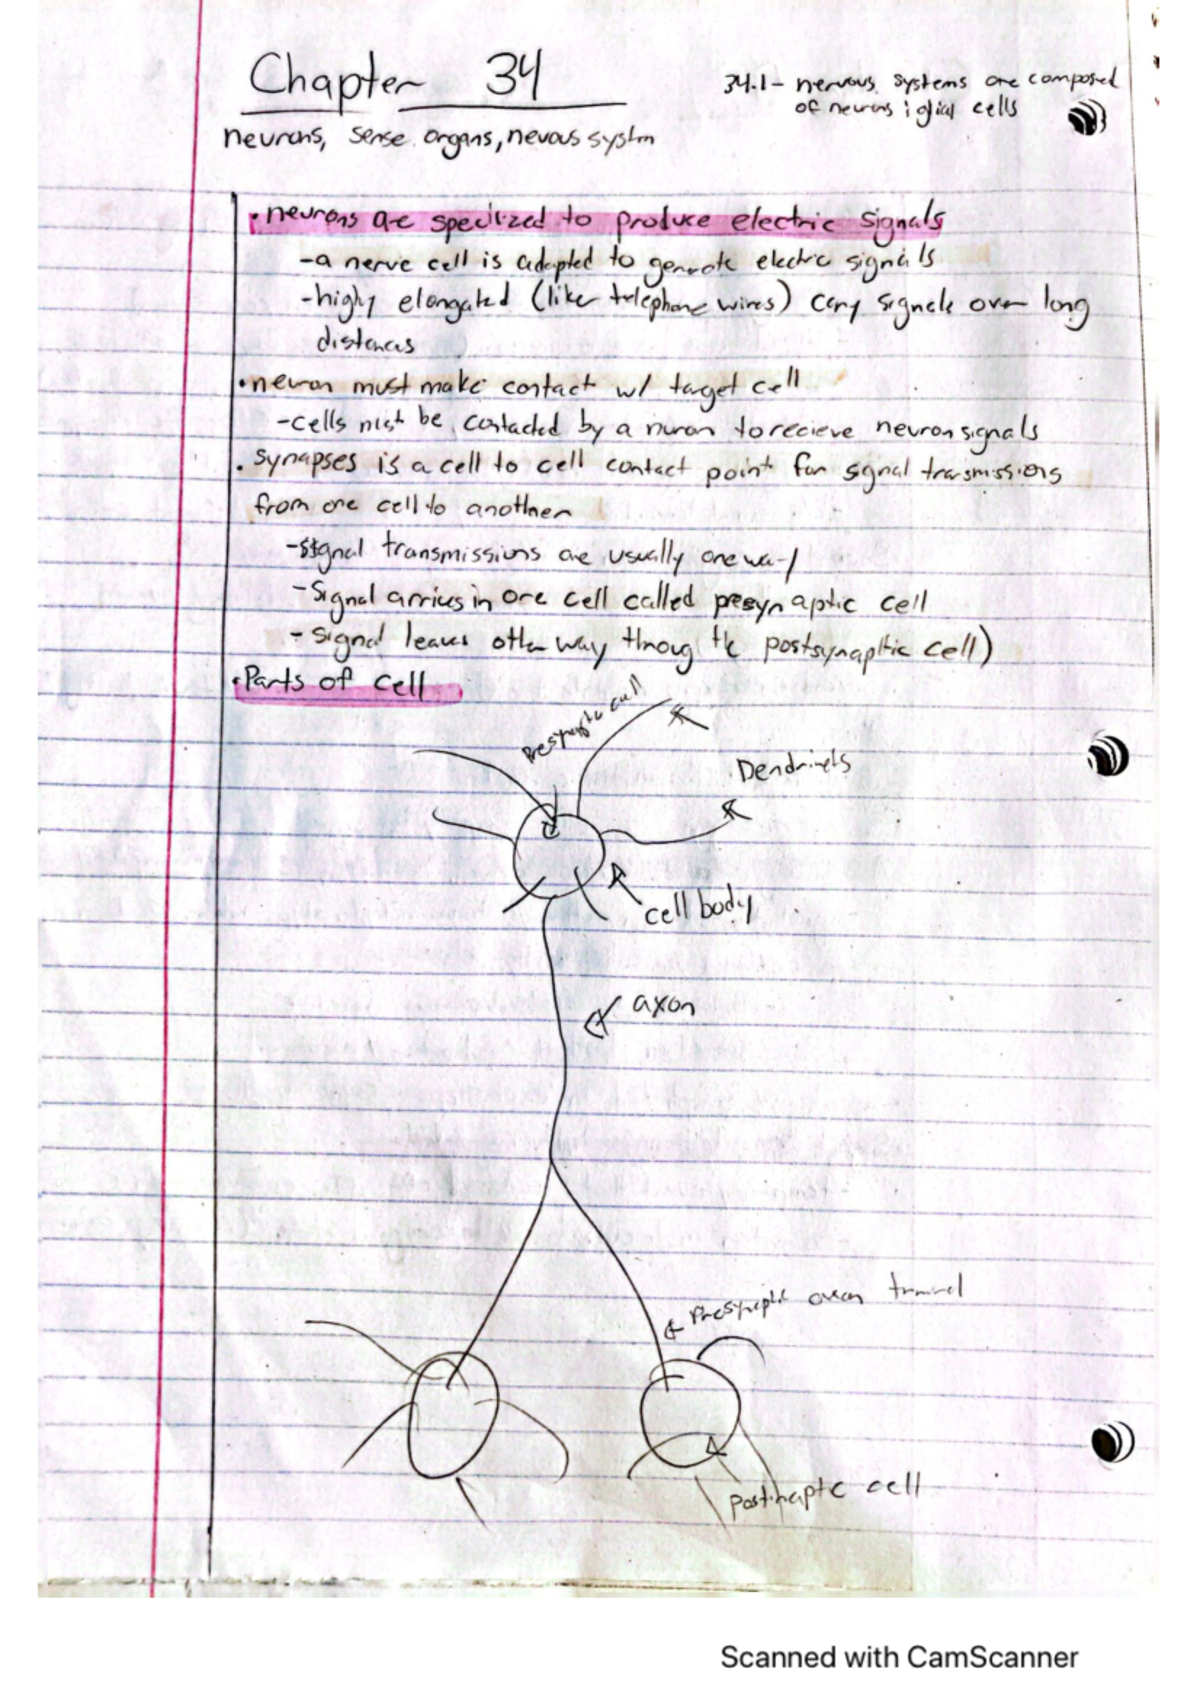 Chapter 34
neurons, sense organs, nevous systm
34.1- nervous systems are composed
of neurons ; glial cells
• neurons are specilized to produce electric signals
-a nerve cell is adapted to generate electric signals
-highy elongated (like telephone wires) cary signals over long
distances
• neuron must make contact w/ target cell
-cells must be contacted by a nuron to recieve neuron signals
• synapses is a cell to cell contact point for signal transmissions
from one cell to another
-signal transmissions are usually one way
- Signal arrives in one cell called presynaptic cell
- signal leaves other way throug the postsynaptic cell)
• Parts of cell
cell
Dendrinets
cell body
axon
axon
Postnaptc cell
Scanned with CamScanner